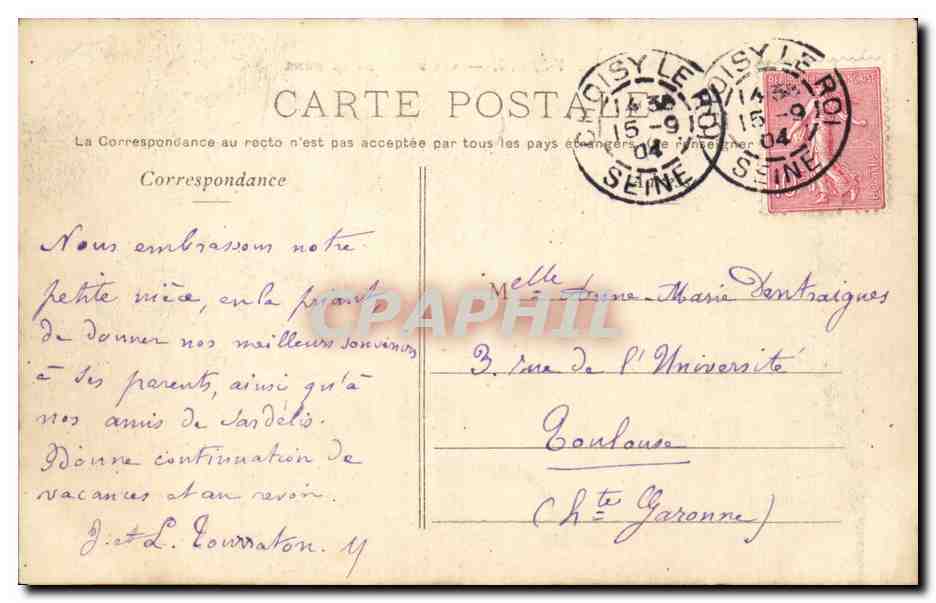 CARTE POSTALE
La Correspondance au recto n'est pas acceptée par tous les pays étrangers (Se renseigner
Correspondance
CHOISY LE ROI
14 30
15 -9
04
SEINE
CHOISY LE ROI
14 30
15 -9
04
SEINE
Nous embrassons notre
petite nièce, en la priant
de donner nos meilleurs souvenirs
à ses parents, ainsi qu'à
nos amis de Sardélis.
Bonne continuation de
vacances et au revoir.
J. et L. Tourraton.
Melle Anne-Marie Dentraigues
3, rue de l'Université
Toulouse
(Hte Garonne)
CPAPHIL